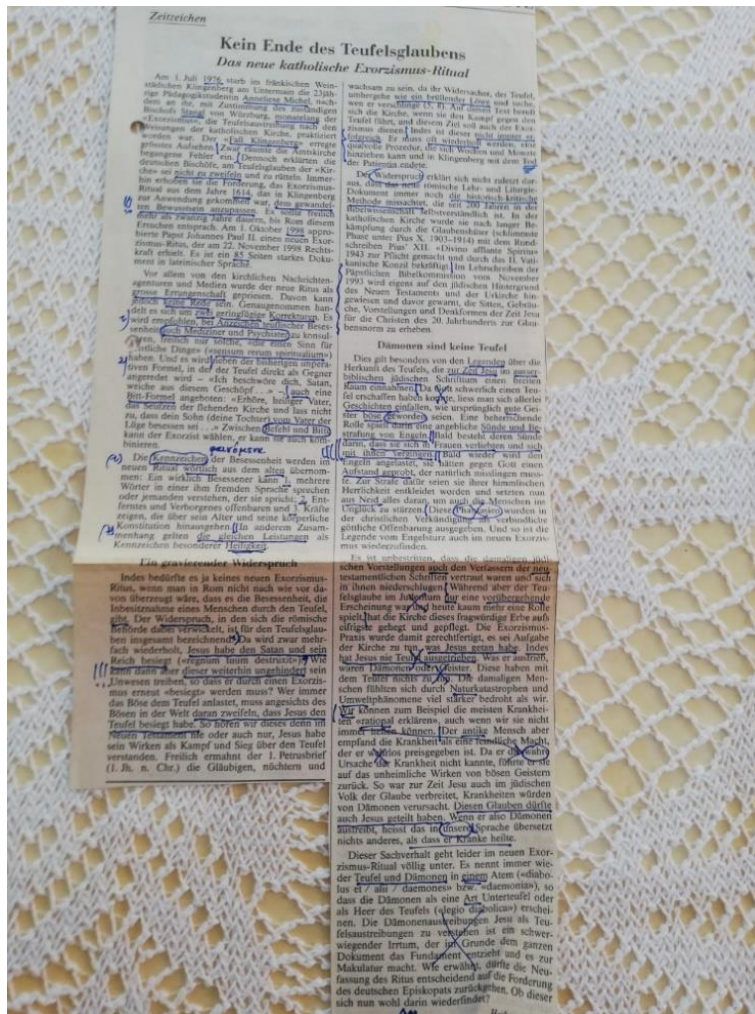 Zeitzeichen
Kein Ende des Teufelsglaubens
Das neue katholische Exorzismus-Ritual
Am 1. Juli 1976 starb im fränkischen Wein-
städtchen Klingenberg am Untermain die 23jäh-
rige Pädagogikstudentin Anneliese Michel, nach-
dem an ihr, mit Zustimmung des zuständigen
Bischofs Stangl von Würzburg, monatelang der
«Exorzismus», die Teufelsaustreibung nach den
Weisungen der katholischen Kirche, praktiziert
worden war. Der «Fall Klingenberg» erregte
grösstes Aufsehen. Zwar räumte die Amtskirche
begangene Fehler ein. Dennoch erklärten die
deutschen Bischöfe, am Teufelsglauben der «Kir-
che» sei nicht zu zweifeln und zu rütteln. Immer-
hin erhoben sie die Forderung, das Exorzismus-
Ritual aus dem Jahre 1614, das in Klingenberg
zur Anwendung gekommen war, dem gewandel-
ten Bewusstsein anzupassen. Es sollte freilich
mehr als zwanzig Jahre dauern, bis Rom diesem
Ersuchen entsprach. Am 1. Oktober 1998 appro-
bierte Papst Johannes Paul II. einen neuen Exor-
zismus-Ritus, der am 22. November 1998 Rechts-
kraft erhielt. Es ist ein 85 Seiten starkes Doku-
ment in lateinischer Sprache.
Vor allem von den kirchlichen Nachrichten-
agenturen und Medien wurde der neue Ritus als
grosse Errungenschaft gepriesen. Davon kann
jedoch keine Rede sein. Genaugenommen han-
delt es sich um zwei geringfügige Korrekturen. Es
wird empfohlen, bei Anzeichen teuflischer Beses-
senheit auch Mediziner und Psychiater zu konsul-
tieren, freilich nur solche, «die einen Sinn für
geistliche Dinge» («sensum rerum spiritualium»)
haben. Und es wird neben der bisherigen impera-
tiven Formel, in der der Teufel direkt als Gegner
angeredet wird – «Ich beschwöre dich, Satan,
weiche aus diesem Geschöpf . . .» – auch eine
Bitt-Formel angeboten: «Erhöre, heiliger Vater,
das Seufzen der flehenden Kirche und lass nicht
zu, dass dein Sohn (deine Tochter) vom Vater der
Lüge besessen sei . . .» Zwischen Befehl und Bitte
kann der Exorzist wählen, er kann sie auch kom-
binieren.
Die Kennzeichen der Besessenheit werden im
neuen Ritual wörtlich aus dem alten übernom-
men: Ein wirklich Besessener kann 1. mehrere
Wörter in einer ihm fremden Sprache sprechen
oder jemanden verstehen, der sie spricht, 2. Ent-
ferntes und Verborgenes offenbaren und 3. Kräfte
zeigen, die über sein Alter und seine körperliche
Konstitution hinausgehen. In anderem Zusam-
menhang gelten die gleichen Leistungen als
Kennzeichen besonderer Heiligkeit.
Ein gravierender Widerspruch
Indes bedürfte es ja keines neuen Exorzismus-
Ritus, wenn man in Rom nicht nach wie vor da-
von überzeugt wäre, dass es die Besessenheit, die
Inbesitznahme eines Menschen durch den Teufel,
gibt. Der Widerspruch, in den sich die römische
Behörde dabei verwickelt, ist für den Teufelsglau-
ben insgesamt bezeichnend: Da wird zwar mehr-
fach wiederholt, Jesus habe den Satan und sein
Reich besiegt («regnum tuum destruxit»). Wie
kann dann aber dieser weiterhin ungehindert sein
Unwesen treiben, so dass er durch einen Exorzis-
mus erneut «besiegt» werden muss? Wer immer
das Böse dem Teufel anlastet, muss angesichts des
Bösen in der Welt daran zweifeln, dass Jesus den
Teufel besiegt habe. So hören wir dieses denn im
Neuen Testament nie oder auch nur, Jesus habe
sein Wirken als Kampf und Sieg über den Teufel
verstanden. Freilich ermahnt der 1. Petrusbrief
(1. Jh. n. Chr.) die Gläubigen, nüchtern und
wachsam zu sein, da ihr Widersacher, der Teufel,
umhergehe wie ein brüllender Löwe und suche,
wen er verschlinge (5, 8). Auf diesen Text beruft
sich die Kirche, wenn sie den Kampf gegen den
Teufel führt, und diesem Ziel soll auch der Exor-
zismus dienen. Indes ist dieser nicht immer er-
folgreich. Er muss oft wiederholt werden, eine
qualvolle Prozedur, die sich Wochen und Monate
hinziehen kann und in Klingenberg mit dem Tod
der Patientin endete.
Der Widerspruch erklärt sich nicht zuletzt dar-
aus, dass das neue römische Lehr- und Liturgie-
Dokument immer noch die historisch-kritische
Methode missachtet, die seit 200 Jahren in der
Bibelwissenschaft selbstverständlich ist. In der
katholischen Kirche wurde sie nach langer Be-
kämpfung durch die Glaubenshüter (schlimmste
Phase unter Pius X. 1903–1914) mit dem Rund-
schreiben Pius' XII. «Divino afflante Spiritu»
1943 zur Pflicht gemacht und durch das II. Vati-
kanische Konzil bekräftigt. Im Lehrschreiben der
Päpstlichen Bibelkommission vom November
1993 wird eigens auf den jüdischen Hintergrund
des Neuen Testaments und der Urkirche hin-
gewiesen und davor gewarnt, die Sitten, Gebräu-
che, Vorstellungen und Denkformen der Zeit Jesu
für die Christen des 20. Jahrhunderts zur Glau-
bensnorm zu erheben.
Dämonen sind keine Teufel
Dies gilt besonders von den Legenden über die
Herkunft des Teufels, die zur Zeit Jesu im ganzen
biblischen jüdischen Schrifttum einen breiten
Raum einnahmen. Da Gott schwerlich einen Teu-
fel erschaffen haben konnte, liess man sich allerlei
Geschichten einfallen, wie ursprünglich gute Gei-
ster böse geworden seien. Eine beherrschende
Rolle spielt darin eine angebliche Sünde und Be-
strafung von Engeln. Bald besteht deren Sünde
darin, dass sie sich in Frauen verliebten und sich
mit ihnen vergingen. Bald wieder wird den
Engeln angelastet, sie hätten gegen Gott einen
Aufstand geprobt, der natürlich misslingen muss-
te. Zur Strafe dafür seien sie ihrer himmlischen
Herrlichkeit entkleidet worden und setzten nun
aus Neid alles daran, um auch die Menschen ins
Unglück zu stürzen. Diese Phantasien wurden in
der christlichen Verkündigung als verbindliche
göttliche Offenbarung ausgegeben. Und so ist die
Legende vom Engelsturz auch im neuen Exorzis-
mus wiederzufinden.
Es ist unbestritten, dass die damaligen jüdi-
schen Vorstellungen auch den Verfassern der neu-
testamentlichen Schriften vertraut waren und sich
in ihnen niederschlugen. Während aber der Teu-
felsglaube im Judentum nur eine vorübergehende
Erscheinung war und heute kaum mehr eine Rolle
spielt, hat die Kirche dieses fragwürdige Erbe aufs
eifrigste gehegt und gepflegt. Die Exorzismus-
Praxis wurde damit gerechtfertigt, es sei Aufgabe
der Kirche zu tun, was Jesus getan habe. Indes
hat Jesus nie Teufel ausgetrieben. Was er austrieb,
waren Dämonen oder Geister. Diese haben mit
dem Teufel nichts zu tun. Die damaligen Men-
schen fühlten sich durch Naturkatastrophen und
Umweltphänomene viel stärker bedroht als wir.
Wir können zum Beispiel die meisten Krankhei-
ten «rational erklären», auch wenn wir sie nicht
immer heilen können. Der antike Mensch aber
empfand die Krankheit als eine feindliche Macht,
der er wehrlos preisgegeben ist. Da er die wahre
Ursache der Krankheit nicht kannte, führte er sie
auf das unheimliche Wirken von bösen Geistern
zurück. So war zur Zeit Jesu auch im jüdischen
Volk der Glaube verbreitet, Krankheiten würden
von Dämonen verursacht. Diesen Glauben dürfte
auch Jesus geteilt haben. Wenn er also Dämonen
austreibt, heisst das in unsere Sprache übersetzt
nichts anderes, als dass er Kranke heilte.
Dieser Sachverhalt geht leider im neuen Exor-
zismus-Ritual völlig unter. Es nennt immer wie-
der Teufel und Dämonen in einem Atem («diabo-
lus et / alii / daemones» bzw. «daemonia»), so
dass die Dämonen als eine Art Unterteufel oder
als Heer des Teufels («legio diabolica») erschei-
nen. Die Dämonenaustreibungen Jesu als Teu-
felsaustreibungen zu verstehen ist ein schwer-
wiegender Irrtum, der im Grunde dem ganzen
Dokument das Fundament entzieht und es zur
Makulatur macht. Wie erwähnt, dürfte die Neu-
fassung des Ritus entscheidend auf die Forderung
des deutschen Episkopats zurückgehen. Ob dieser
sich nun wohl darin wiederfindet?